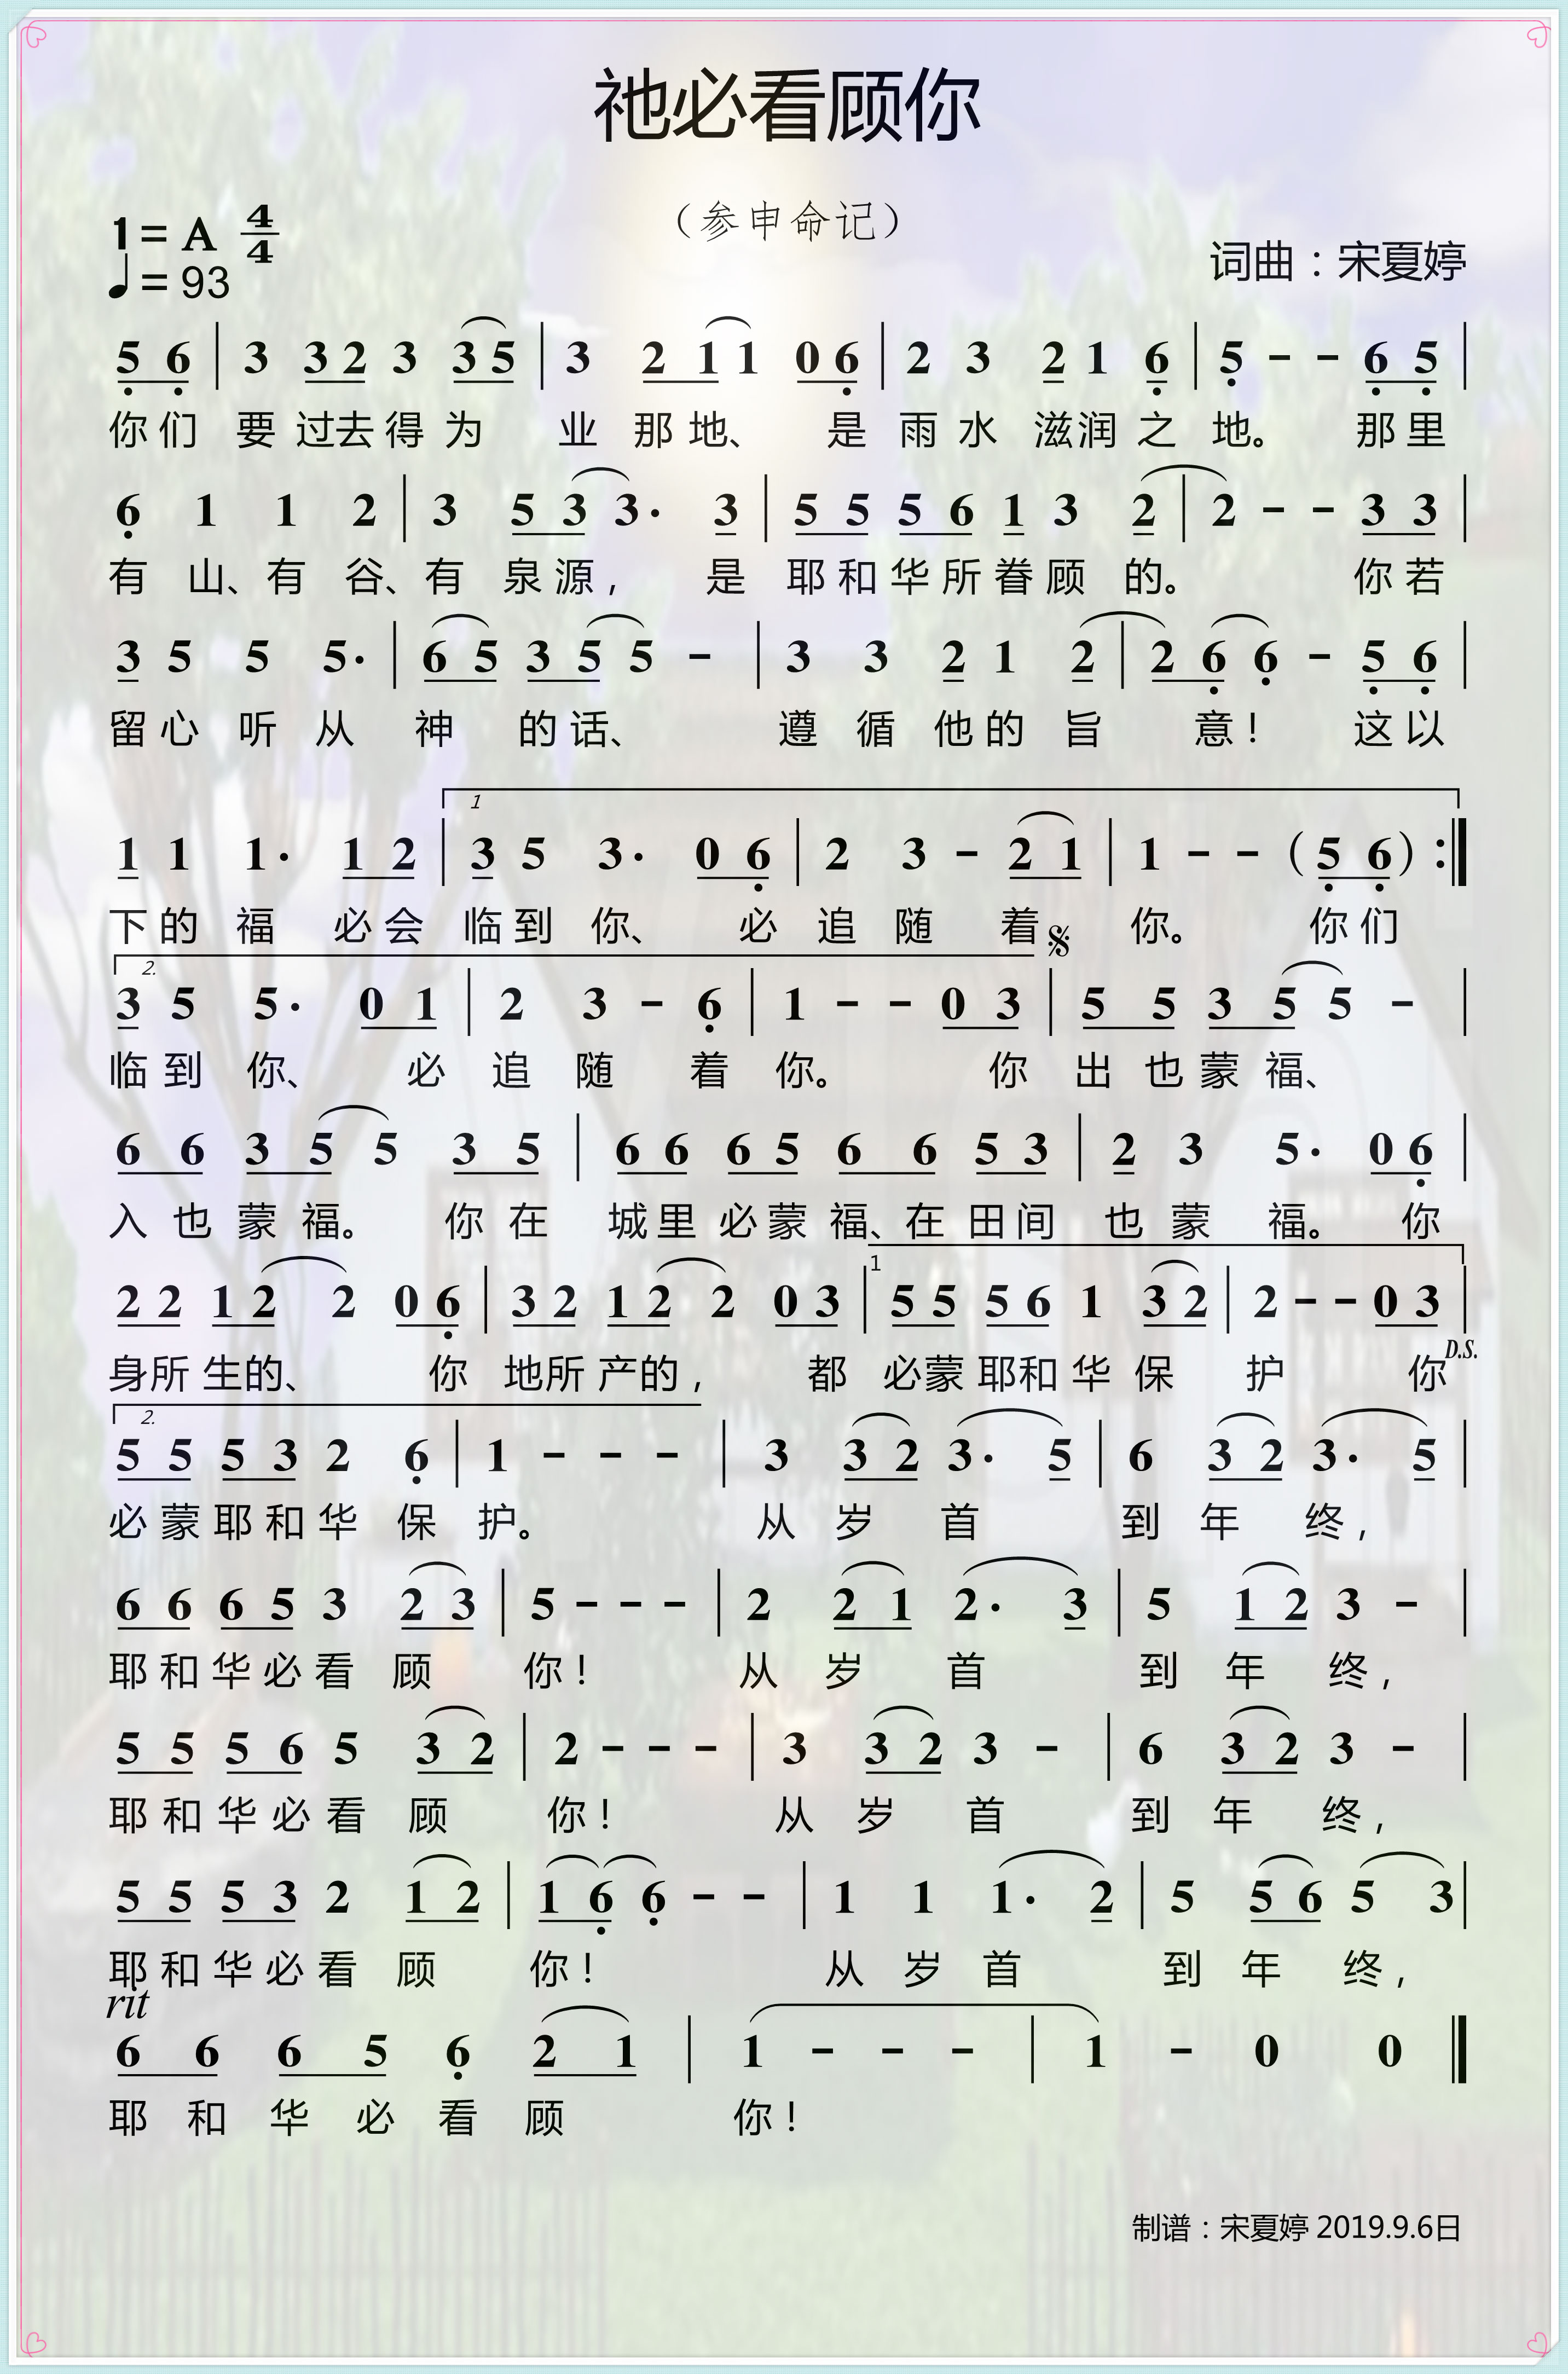 祂必看顾你
（参申命记）
1= A 4/4
♩= 93
词曲：宋夏婷
5 6 | 3 3 2 3 3 5 | 3 2 1 1 0 6 | 2 3 2 1 6 | 5 - - 6 5 |
你们 要 过去得为 业 那地、 是 雨水 滋润之 地。 那里
6 1 1 2 | 3 5 3 3· 3 | 5 5 5 6 1 3 2 | 2 - - 3 3 |
有 山、有 谷、有 泉源， 是 耶和华所眷顾 的。 你若
3 5 5 5· | 6 5 3 5 5 - | 3 3 2 1 2 | 2 6 6 - 5 6 |
留心 听 从 神 的话、 遵 循 他的 旨 意！ 这以
1
1 1 1· 1 2 | 3 5 3· 0 6 | 2 3 - 2 1 | 1 - - （5 6） :|
下的 福 必会 临到 你、 必 追 随 着 你。 你们
2. 𝄋
3 5 5· 0 1 | 2 3 - 6 | 1 - - 0 3 | 5 5 3 5 5 - |
临到 你、 必 追 随 着 你。 你 出 也蒙 福、
6 6 3 5 5 3 5 | 6 6 6 5 6 6 5 3 | 2 3 5· 0 6 |
入 也 蒙 福。 你 在 城里 必蒙 福、在 田间 也 蒙 福。 你
1
2 2 1 2 2 0 6 | 3 2 1 2 2 0 3 | 5 5 5 6 1 3 2 | 2 - - 0 3 |
身所 生的、 你 地所 产的， 都 必蒙 耶和 华 保 护 你 D.S.
2.
5 5 5 3 2 6 | 1 - - - | 3 3 2 3· 5 | 6 3 2 3· 5 |
必蒙耶和华 保 护。 从 岁 首 到 年 终，
6 6 6 5 3 2 3 | 5 - - - | 2 2 1 2· 3 | 5 1 2 3 - |
耶和华必看 顾 你！ 从 岁 首 到 年 终，
5 5 5 6 5 3 2 | 2 - - - | 3 3 2 3 - | 6 3 2 3 - |
耶和华必看 顾 你！ 从 岁 首 到 年 终，
5 5 5 3 2 1 2 | 1 6 6 - - | 1 1 1· 2 | 5 5 6 5 3 |
耶和华必看 顾 你！ 从 岁 首 到 年 终，
rit
6 6 6 5 6 2 1 | 1 - - - | 1 - 0 0 ‖
耶 和 华 必 看 顾 你！
制谱：宋夏婷 2019.9.6日